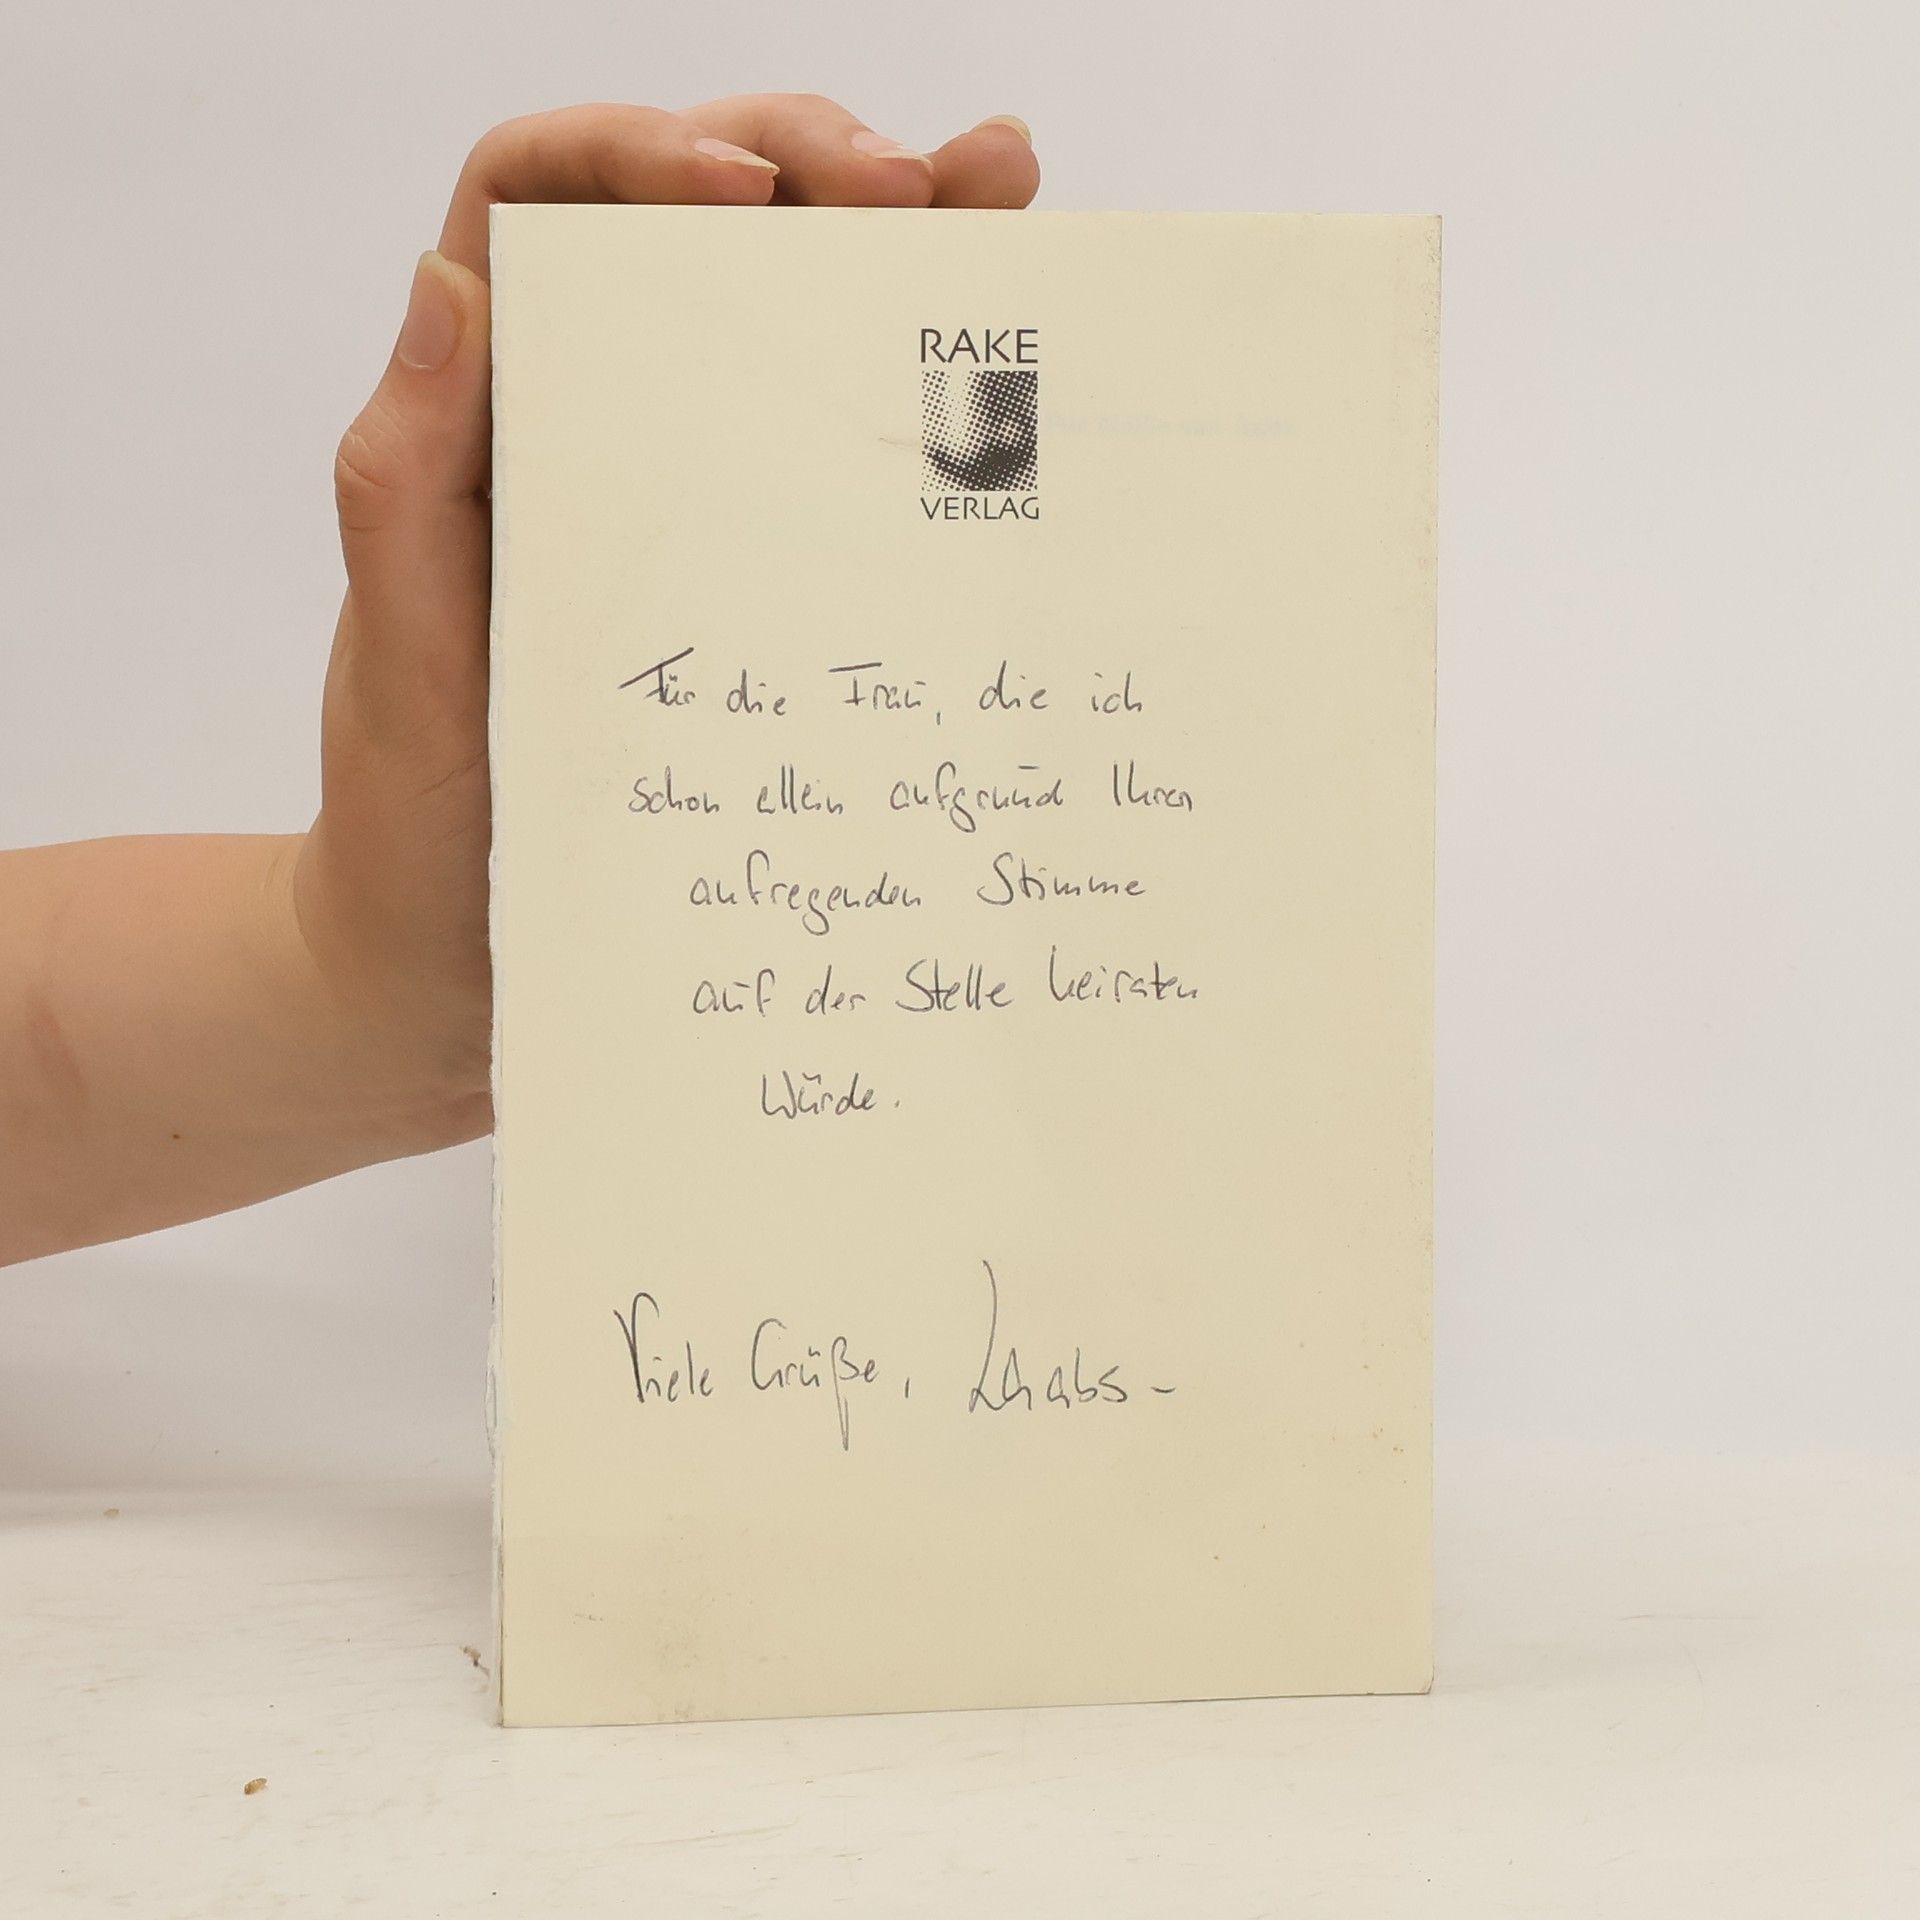 RAKE
VERLAG
Für die Frau, die ich
schon allein aufgrund Ihren
aufregenden Stimme
auf der Stelle heiraten
Würde.
Viele Grüße,